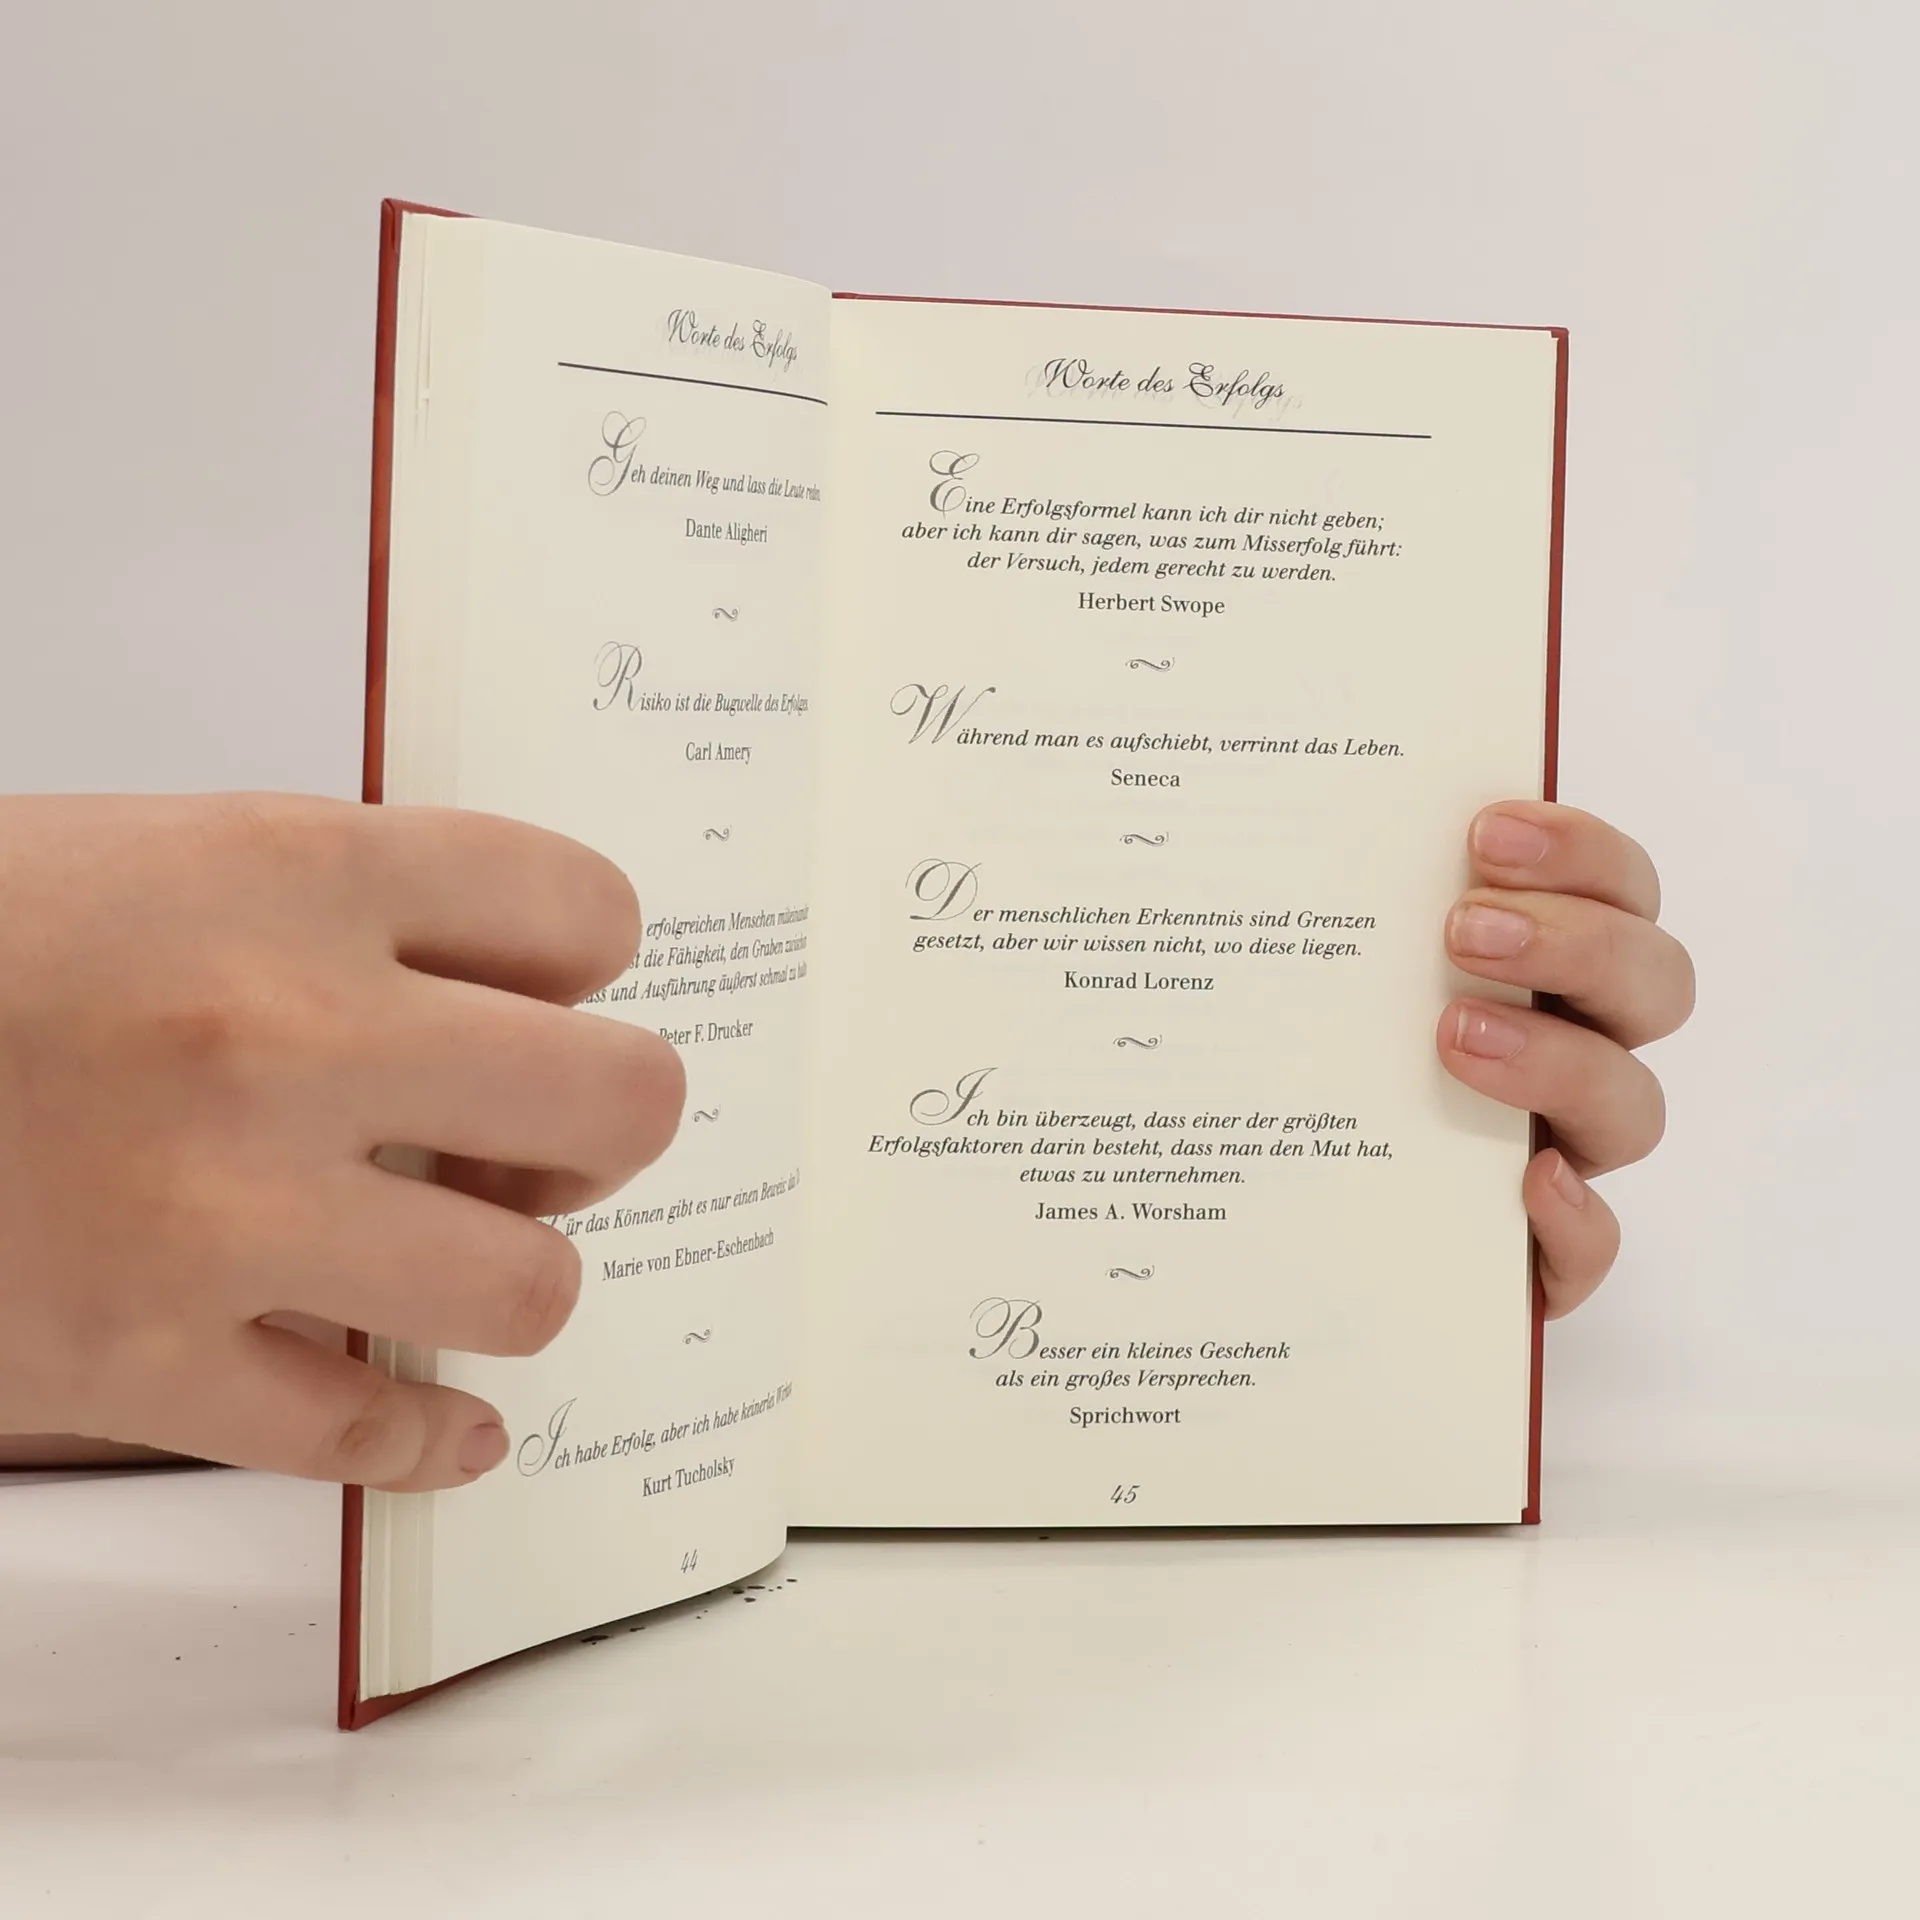 Worte des Erfolgs
Geh deinen Weg und lass die Leute reden.
Dante Aligheri
Risiko ist die Bugwelle des Erfolges.
Carl Amery
erfolgreichen Menschen
die Fähigkeit, den Graben
und Ausführung äußerst schmal zu
Peter F. Drucker
Für das Können gibt es nur einen Beweis: das
Marie von Ebner-Eschenbach
Ich habe Erfolg, aber ich habe keinerlei
Kurt Tucholsky
44
Worte des Erfolgs
Eine Erfolgsformel kann ich dir nicht geben;
aber ich kann dir sagen, was zum Misserfolg führt:
der Versuch, jedem gerecht zu werden.
Herbert Swope
Während man es aufschiebt, verrinnt das Leben.
Seneca
Der menschlichen Erkenntnis sind Grenzen
gesetzt, aber wir wissen nicht, wo diese liegen.
Konrad Lorenz
Ich bin überzeugt, dass einer der größten
Erfolgsfaktoren darin besteht, dass man den Mut hat,
etwas zu unternehmen.
James A. Worsham
Besser ein kleines Geschenk
als ein großes Versprechen.
Sprichwort
45